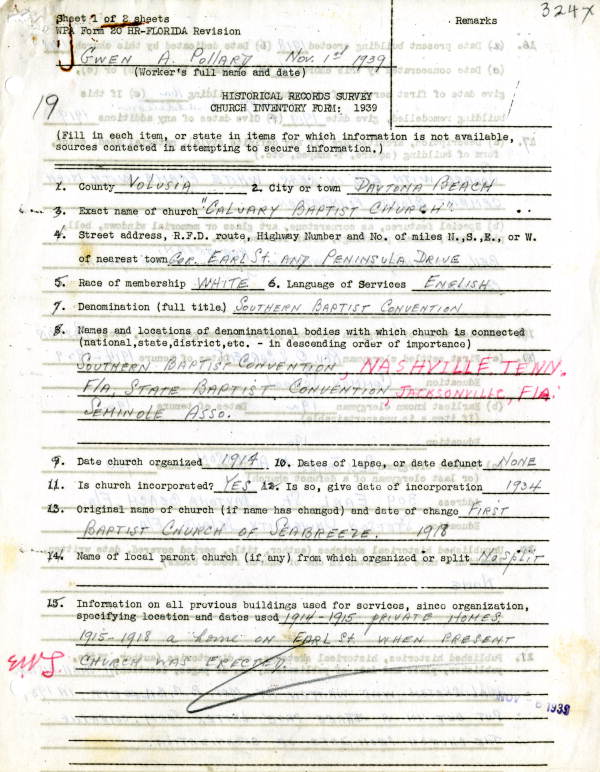 324x
Sheet 1 of 2 sheets
Remarks
WPA Form 20 HR-FLORIDA Revision
GWEN A. POLLARD NOV. 1st 1939
(Worker's full name and date)
19
HISTORICAL RECORDS SURVEY
CHURCH INVENTORY FORM: 1939
(Fill in each item, or state in items for which information is not available,
sources contacted in attempting to secure information.)
1. County VOLUSIA 2. City or town DAYTONA BEACH
3. Exact name of church "CALVARY BAPTIST CHURCH".
4. Street address, R.F.D. route, Highway Number and No. of miles N.,S.,E., or W.
of nearest town COR. EARL ST. AND PENINSULA DRIVE
5. Race of membership WHITE 6. Language of Services ENGLISH
7. Denomination (full title) SOUTHERN BAPTIST CONVENTION
8. Names and locations of denominational bodies with which church is connected
(national,state,district,etc. - in descending order of importance)
SOUTHERN BAPTIST CONVENTION, NASHVILLE, TENN.
FLA. STATE BAPTIST CONVENTION, JACKSONVILLE, FLA.
SEMINOLE ASSO.
9. Date church organized 1914 10. Dates of lapse, or date defunct NONE
11. Is church incorporated? YES 12. Is so, give date of incorporation 1934
13. Original name of church (if name has changed) and date of change FIRST
BAPTIST CHURCH OF SEABREEZE. 1918
14. Name of local parent church (if any) from which organized or split No SPLIT
15. Information on all previous buildings used for services, since organization,
specifying location and dates used 1914-1915 PRIVATE HOMES.
1915-1918 a home on EARL ST. WHEN PRESENT
CHURCH WAS ERECTED.
EWL
1939